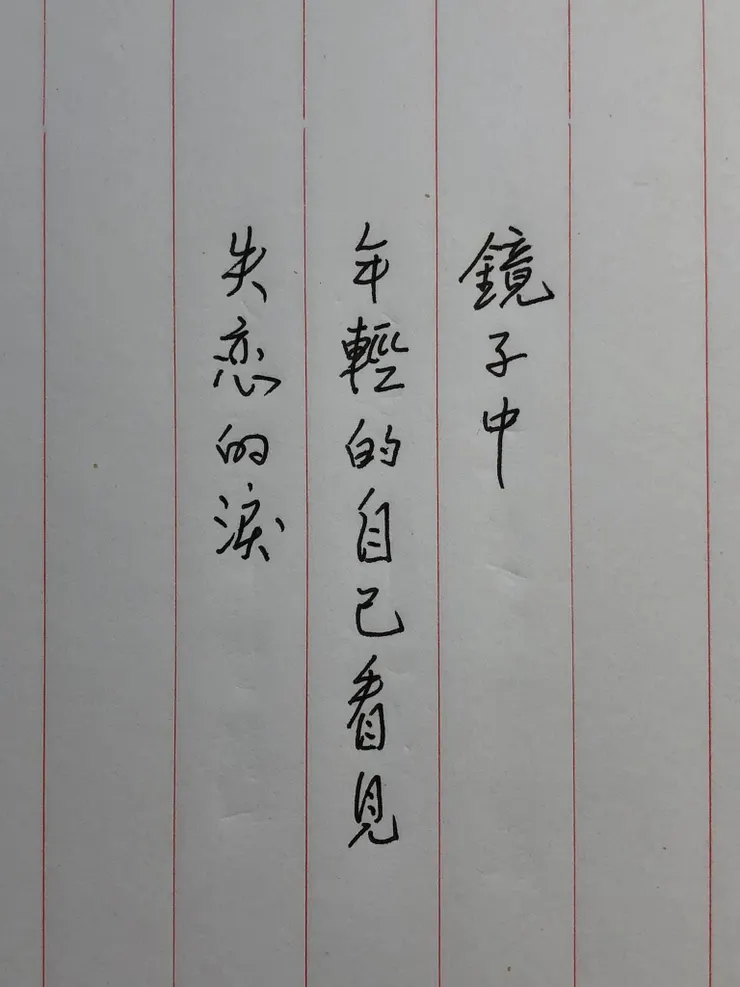 鏡子中
年輕的自己看見
失恋的淚